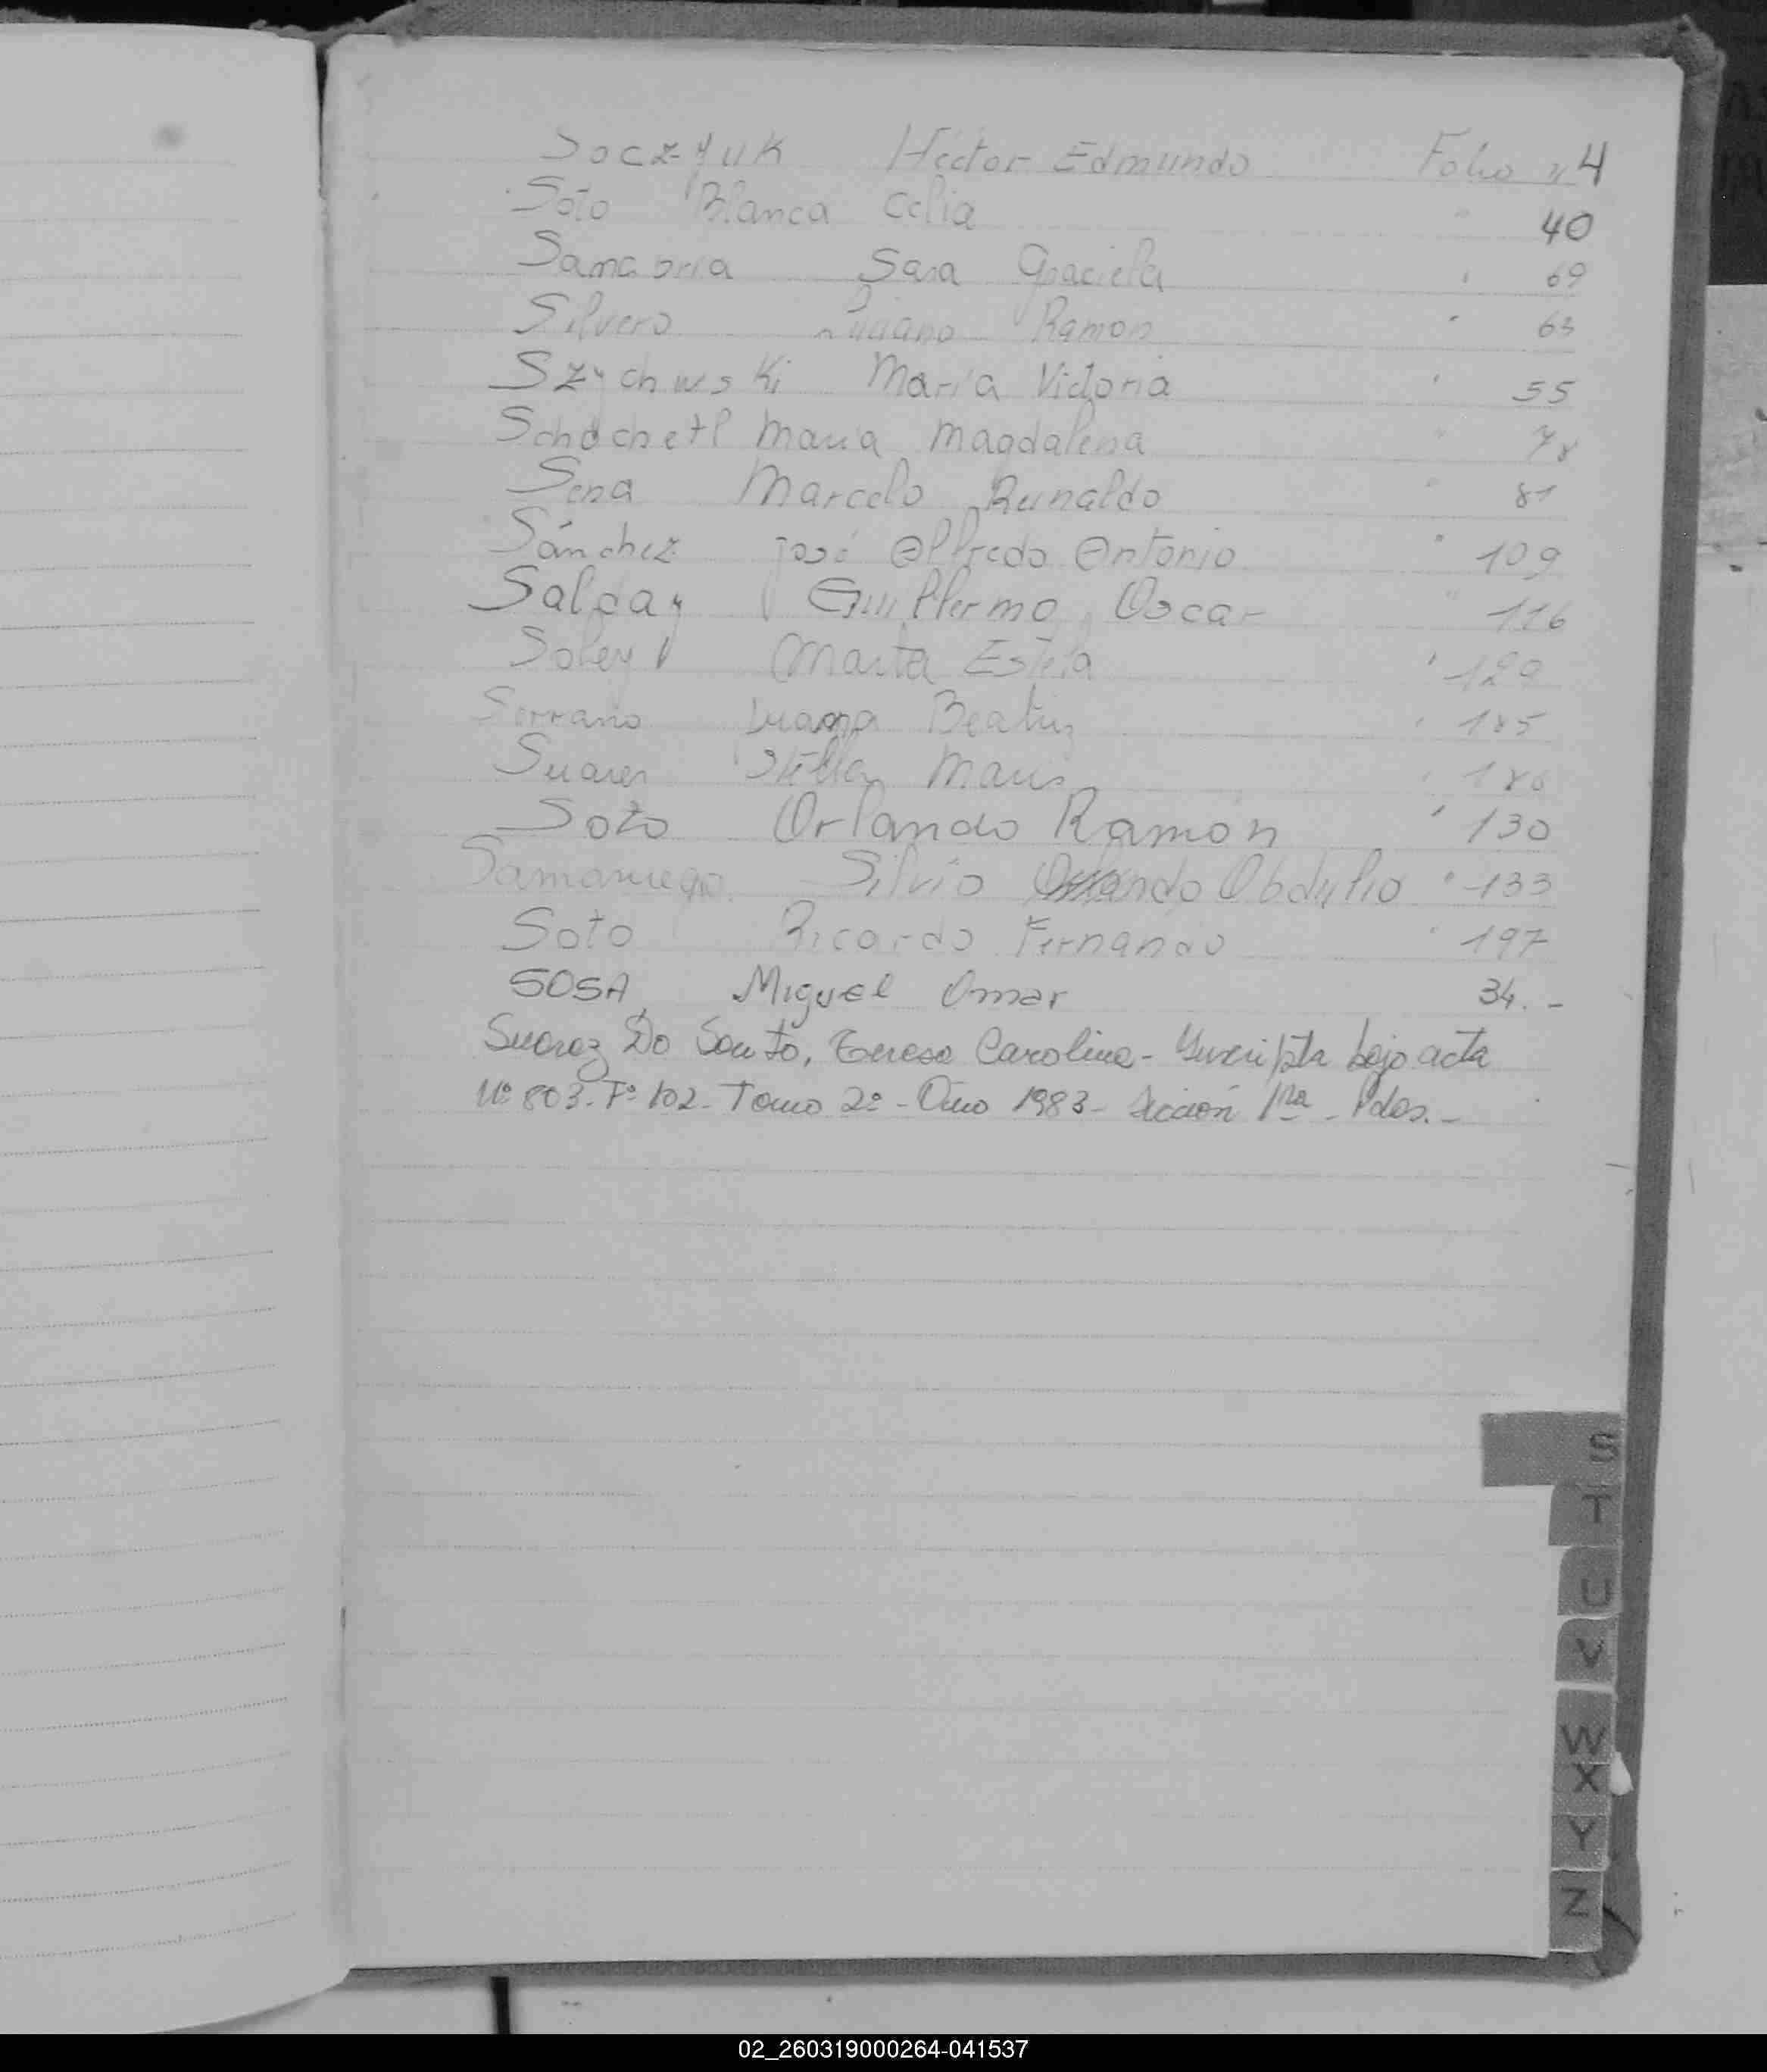 Soczyuk Héctor Edmundo Folio nº 4
Soto Blanca Celia " 40
Sanabria Sara Graciela " 69
Silvero Luciano Ramon " 63
Szychwski María Victoria " 55
Schöchetl Maria Magdalena " 78
Sena Marcelo Reinaldo " 81
Sánchez José Alfredo Antonio " 109
Salday Guillermo Oscar " 116
Soley Marta Estela " 120
Serrano Beatriz " 185
Suarez Stella Maris " 186
Soto Orlando Ramón " 130
Samaniego Silvio Orlando Obdulio " 133
Soto Ricardo Fernando " 197
SOSA Miguel Omar 34.-
Suarez Do Santo, Teresa Carolina - Inscripta bajo acta
Nº 803 - Fº 102 - Tomo 2º - Año 1983 - Sección 1ra - Pdas.-
S
T
U
V
W
X
Y
Z
02_260319000264-041537